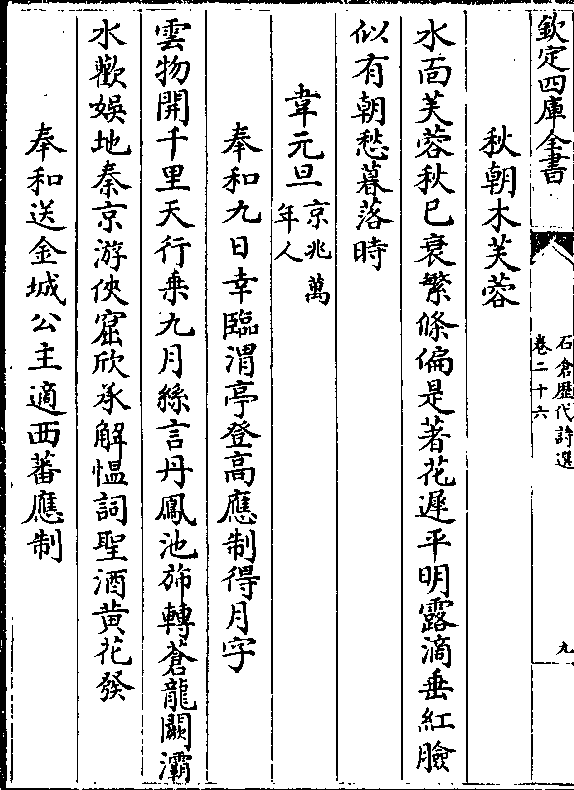 欽定四庫全書
石倉歴代詩選
卷二十六
九
秋朝木芙蓉
水面芙蓉秋已衰繁條偏是著花遲平明露滴垂紅臉
似有朝愁暮落時
韋元旦京兆萬
年人
奉和九日幸臨渭亭登高應制得月字
雲物開千里天行乗九月絲言丹鳳池斾轉蒼龍闕灞
水歡娛地秦京游俠窟欣承解愠詞聖酒黄花發
奉和送金城公主適西蕃應制